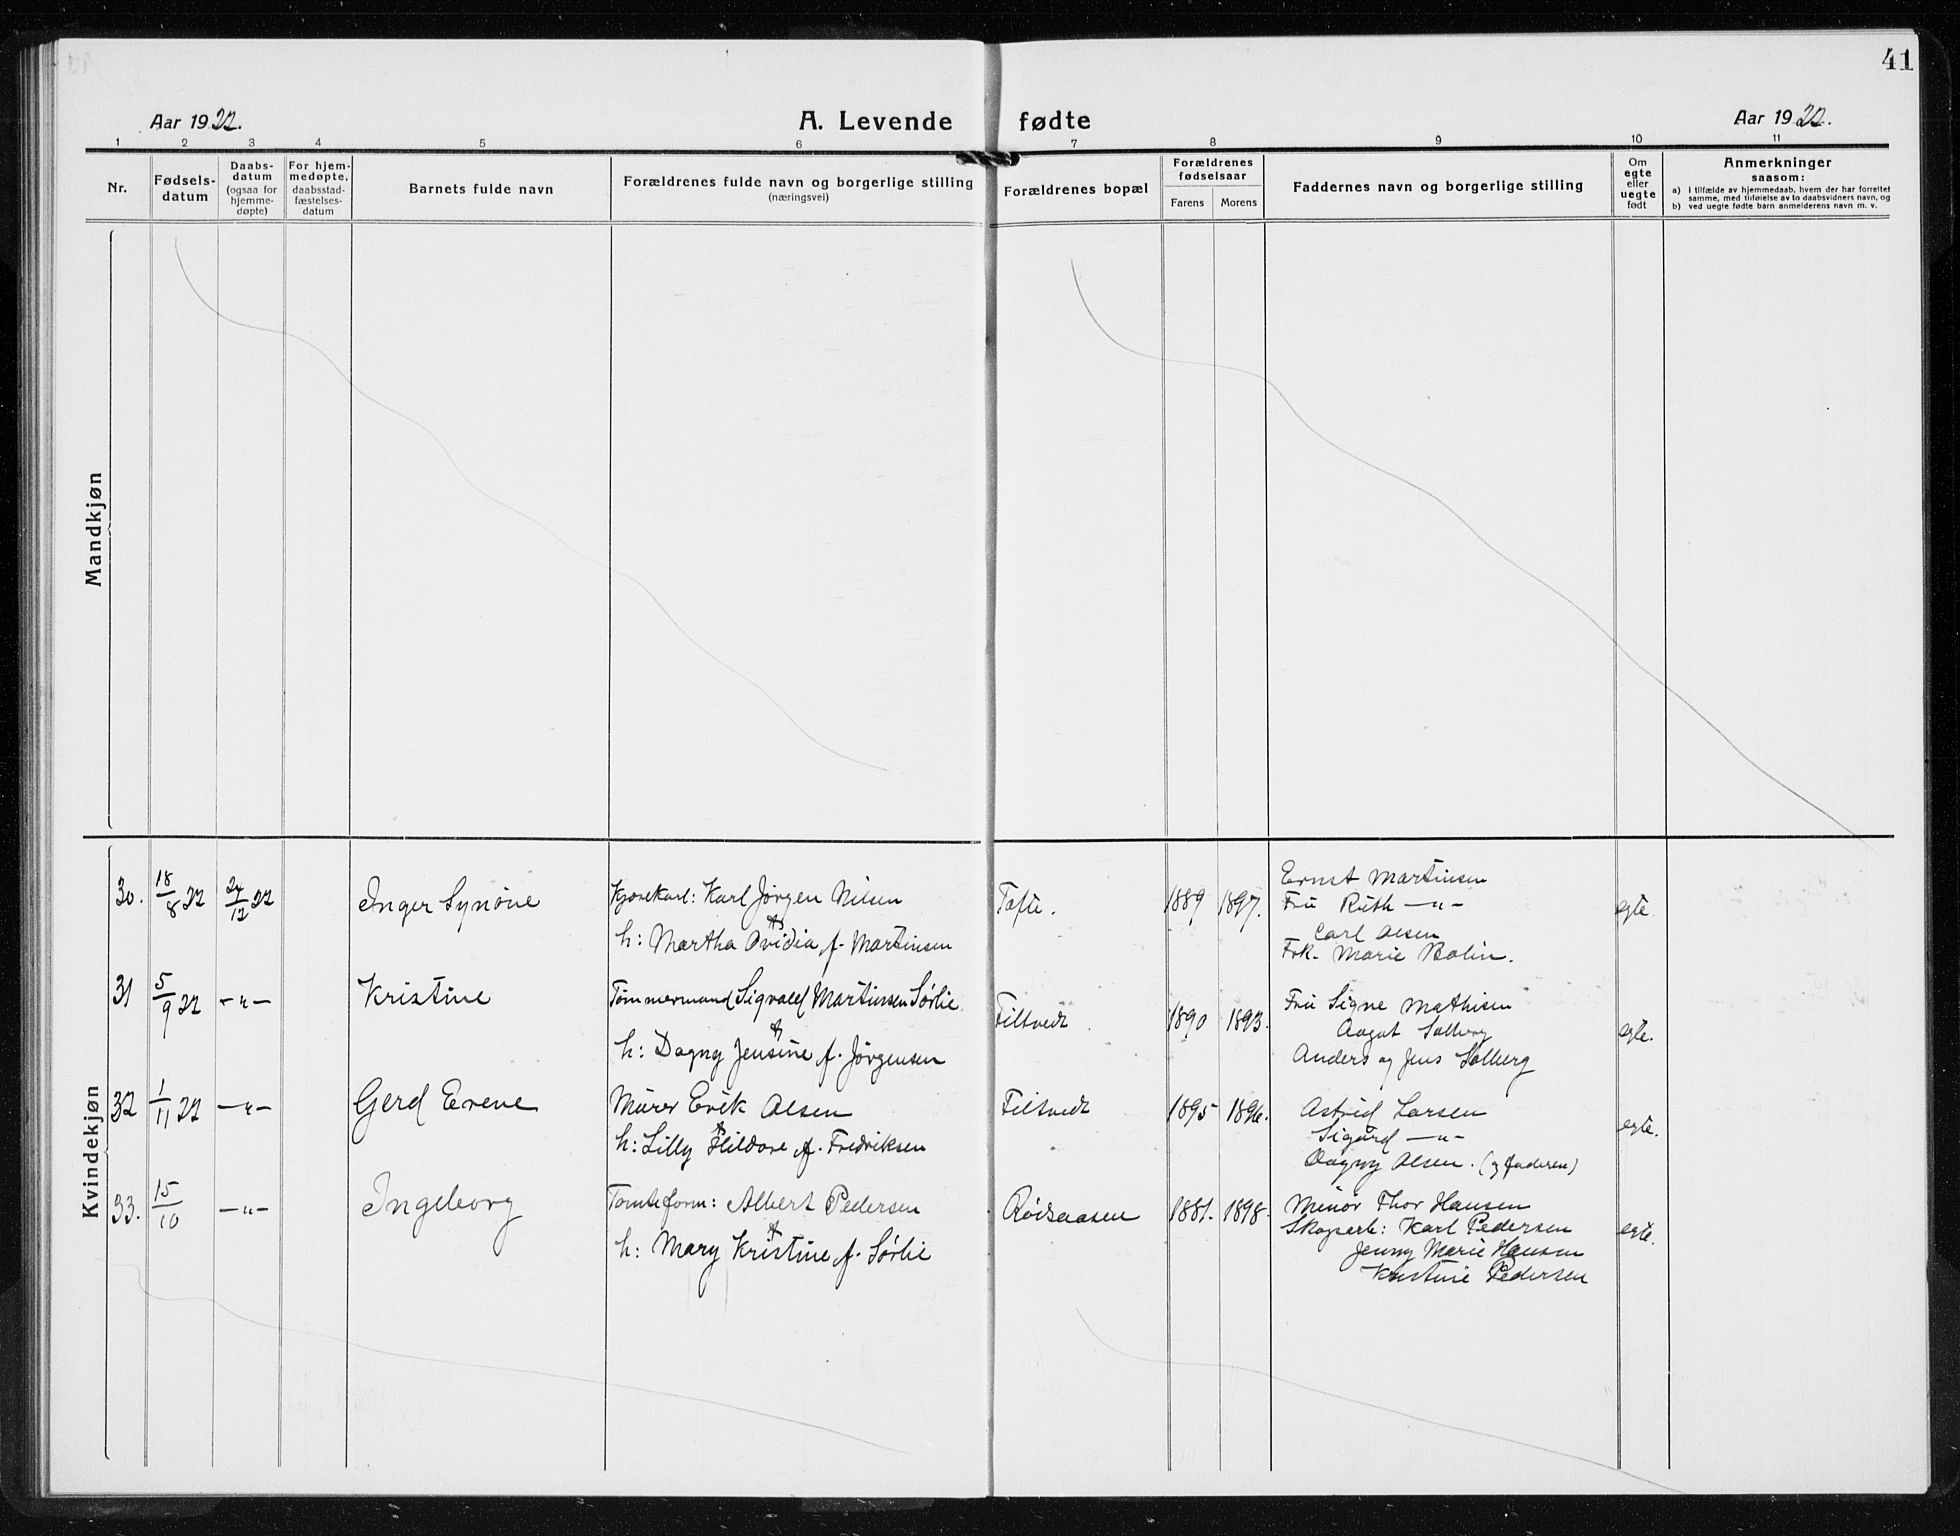 41
Aar 1922.
A. Levende fødte
Aar 1922.
1 2 3 4 5 6 7 8 9 10 11
Nr.
Fødsels-
datum
Daabs-
datum
(ogsaa for
hjemme-
døpte)
For hjem-
medøpte,
daabsstad-
fæstelses-
datum
Barnets fulde navn
Forældrenes fulde navn og borgerlige stilling
(næringsvei)
Forældrenes bopæl
Forældrenes
fødselsaar
Farens Morens
Faddernes navn og borgerlige stilling
Om
egte
eller
uegte
født
Anmerkninger
saasom:
a) i tilfælde av hjemmedaab, hvem der har forrettet
samme, med tilføielse av to daabsvidners navn, og
b) ved uegte fødte barn anmelderens navn m. v.
Mandkjøn
Kvindekjøn
30. 18/8 22 24/12 22
Inger Synöve
Kjørekarl: Karl Jørgen Nilsen
h: Martha Ovidia f. Martinsen
Tofte.
1889 1897.
Ernst Martinsen
Fru Ruth —"—
Carl Olsen
Frk. Marie Bolin.
egte.
31 5/9 22 —"—
Kristine
Tømmermand Sigvald Martinsen Sørlie
h: Dagny Jensine f. Jørgensen
Filtvedt
1890 1893.
Fru Signe Mathisen
Aagot Solberg
Anders og Jens Solberg
egte.
32 1/11 22 —"—
Gerd Evene
Murer Erik Olsen
h: Lilly Hildore f. Fredriksen
Filtvedt
1895 1896.
Astrid Larsen
Sigurd —"—
Dagny Olsen. (og faderen)
egte.
33. 15/10 —"—
Ingeborg
Tomteform: Albert Pedersen
h: Mary Kristine f. Sørlie
Rødsaasen
1881. 1898.
Minør Thor Hansen
Skogsarb: Karl Pedersen
Jenny Marie Hansen
Kristine Pedersen
egte.